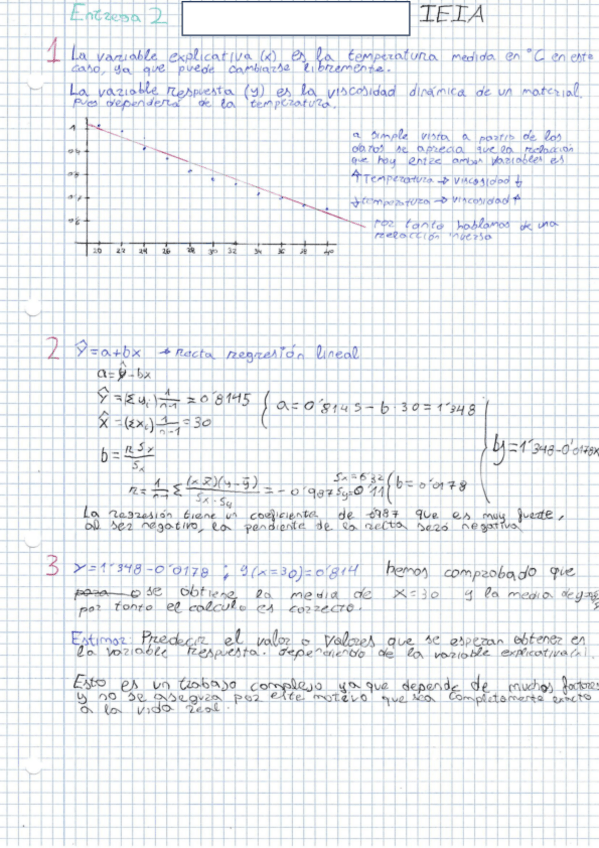 Entrega 2 IEIA
1 La variable explicativa (x) es la temperatura medida en °C en este
caso, ya que puede cambiarse libremente.
La variable respuesta (y) es la viscosidad dinámica de un material,
pues dependerá de la temperatura.
a simple vista a partir de los
datos se aprecia que la relación
que hay entre ambas variables es
↑ Temperatura → viscosidad ↓
↓ temperatura → viscosidad ↑
por tanto hablamos de una
relación inversa
20 22 24 26 28 30 32 34 36 38 40
2 Ŷ = a + bx → recta regresión lineal
a = ŷ - bx
Ŷ = (Σ yi) 1/n-1 = 0'8145
X̂ = (Σ xi) 1/n-1 = 30
a = 0'8145 - b · 30 = 1'348
y = 1'348 - 0'0178x
b = r Sy / Sx
r = 1/n-1 Σ (x-x̄)(y-ȳ) / Sx · Sy = - 0'987
Sx = 6'32
Sy = 0'11
b = 0'0178
La regresión tiene un coeficiente de 0'987 que es muy fuerte,
al ser negativo, la pendiente de la recta será negativa
3 y = 1'348 - 0'0178 ; y(x=30) = 0'814 hemos comprobado que
se obtiene la media de x = 30 y la media de
por tanto el calculo es correcto.
Estimar: Predecir el valor o valores que se esperan obtener en
la variable respuesta. dependiendo de la variable explicativa
Esto es un trabajo complejo ya que depende de muchos factores
y no se asegura por este motivo que sea completamente exacto
a la vida real.